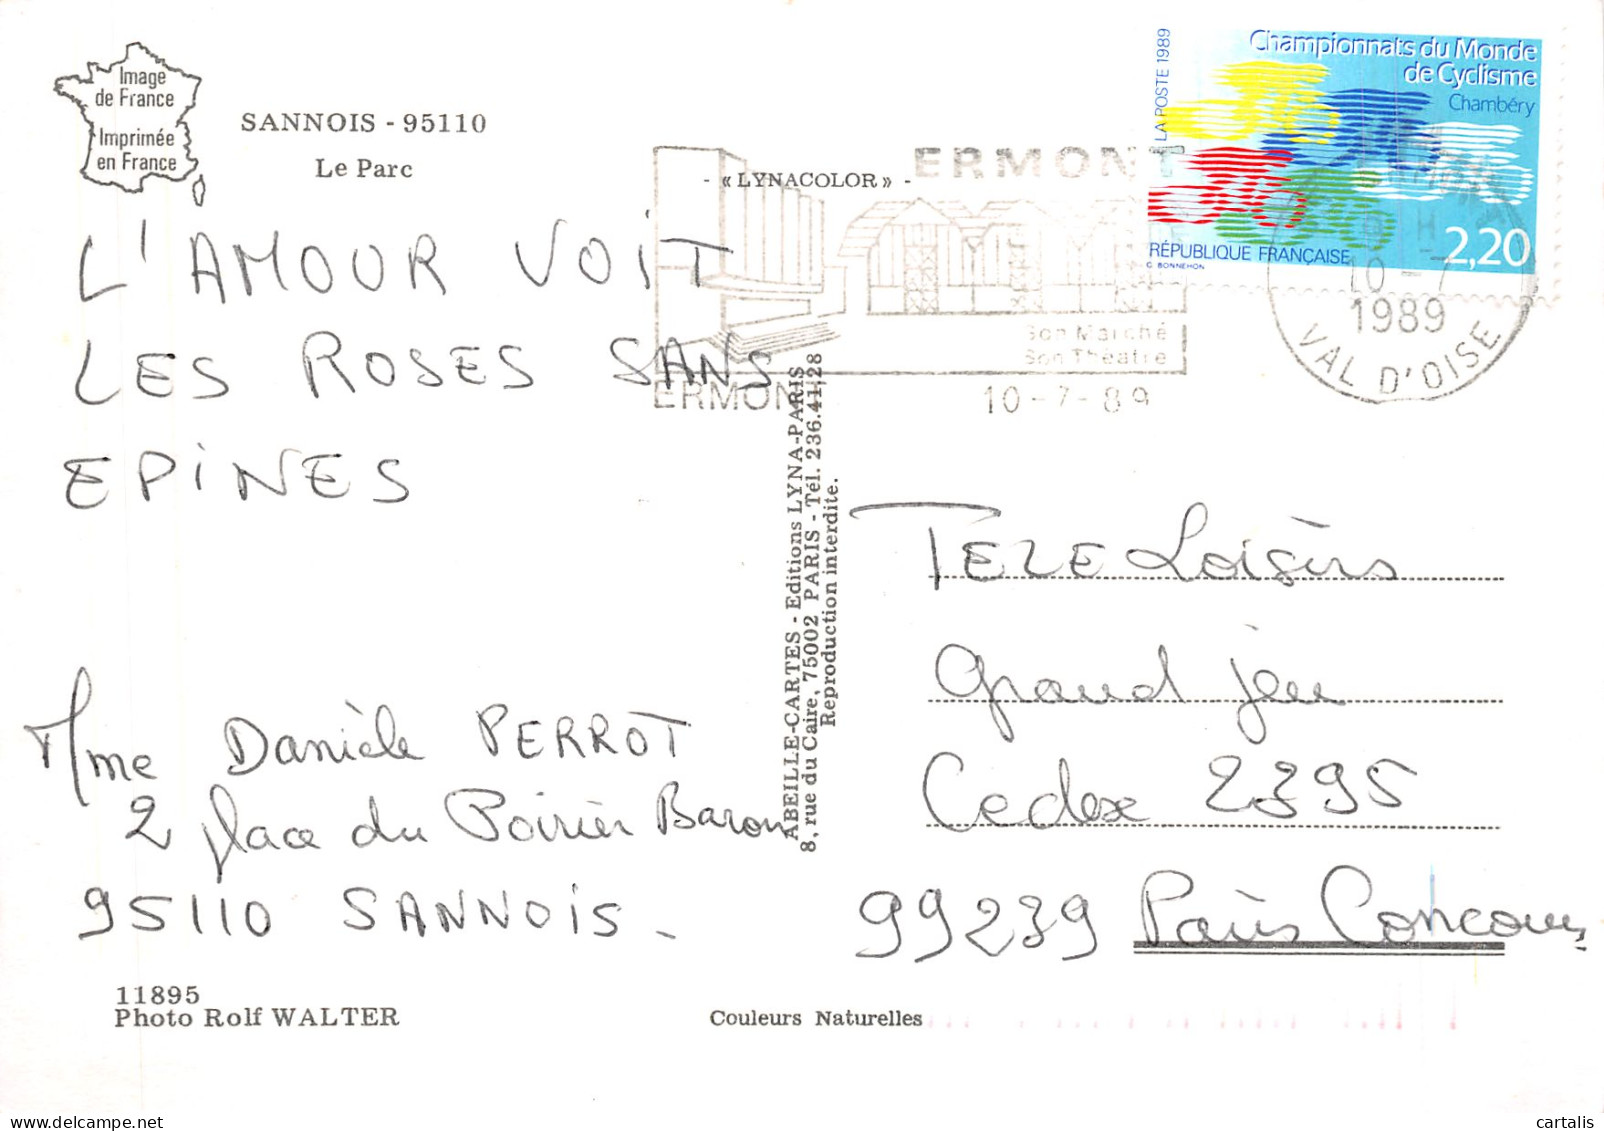 Image
de France
Imprimée
en France
SANNOIS - 95110
Le Parc
- « LYNACOLOR » -
L'AMOUR VOIT
LES ROSES SANS
EPINES
Mme Danièle PERROT
2 place du Poirier Baron
95110 SANNOIS -
11895
Photo Rolf WALTER
ABEILLE-CARTES - Editions LYNA-PARIS
8, rue du Caire, 75002 PARIS - Tél. 236.41.28
Reproduction interdite.
Couleurs Naturelles
ERMONT
Son Marché
Son Théatre
ERMONT
10-7-89
LA POSTE 1989
Championnats du Monde
de Cyclisme
Chambéry
RÉPUBLIQUE FRANÇAISE
C. BONNEHON
2,20
10-7
1989
VAL D'OISE
TELE Loisirs
grand jeu
Cedex 2395
99239 Paris Concours
cartalis
www.delcampe.net